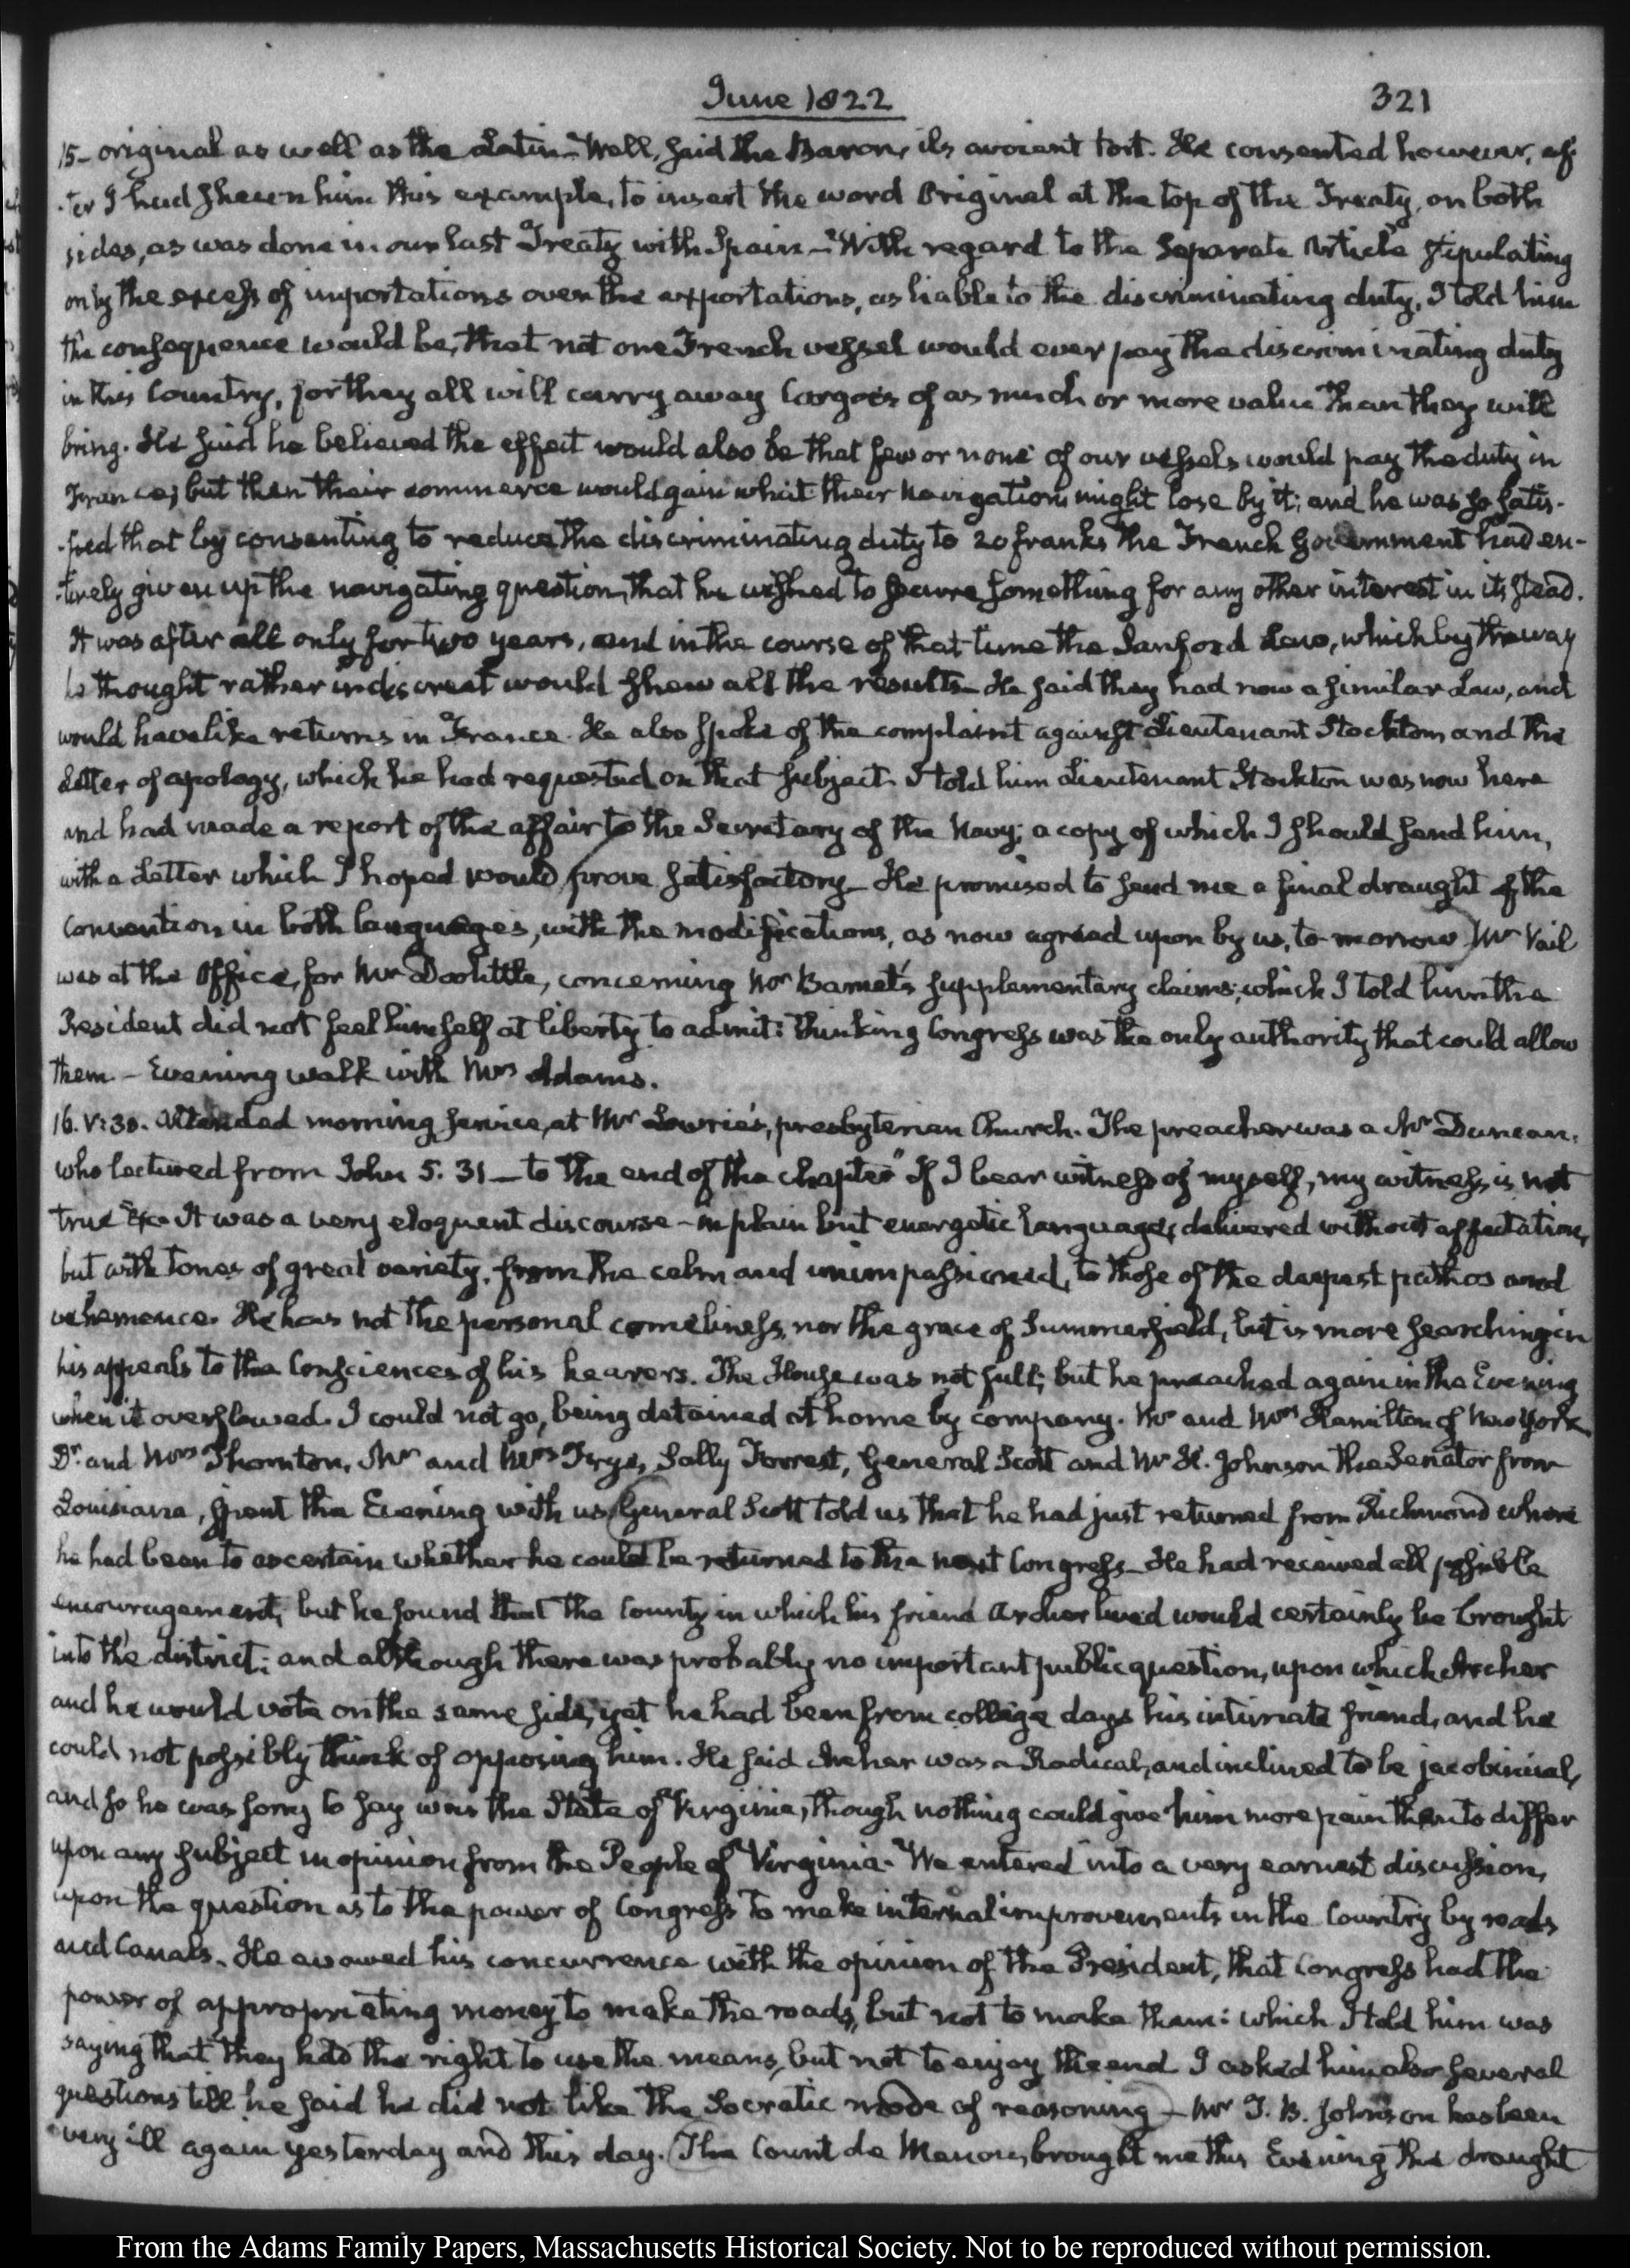 June 1822 321
15- original as well as the Latin- Well, said the Baron, ils avoient tort. He consented however, af-
-ter I had shewn him this example, to insert the word Original at the top of the Treaty, on both
sides, as was done in our last Treaty with Spain- With regard to the Separate Article stipulating
only the excess of importations over the exportations, as liable to the discriminating duty, I told him
the consequence would be, that not one French vessel would ever pay the discriminating duty
in this Country, for they all will carry away Cargoes of as much or more value than they will
bring. He said he believed the effect would also be that few or none of our vessels would pay the duty in
France; but then their commerce would gain what their navigation might lose by it; and he was so satis-
-fied that by consenting to reduce the discriminating duty to 20 franks the French Government had en-
-tirely given up the navigating question, that he wished to secure something for any other interest in its stead.
It was after all only for two years, and in the course of that time the Sanford Law, which by the way
he thought rather indiscreet would shew all the results- He said they had now a similar Law, and
would have like returns in France. He also spoke of the complaint against Lieutenant Stockton, and the
Letter of apology, which he had requested on that subject. I told him Lieutenant Stockton was now here
and had made a report of the affair to the Secretary of the Navy; a copy of which I should send him,
with a Letter which I hoped would prove satisfactory- He promised to send me a final draught of the
Convention in both languages, with the modifications, as now agreed upon by us, to-morrow. Mr Vail
was at the Office, for Mr Doolittle, concerning Mr Barnet's supplementary claims; which I told him the
President did not feel himself at liberty to admit: thinking Congress was the only authority that could allow
them.- Evening walk with Mrs Adams.
16. V:30. Attended morning service, at Mr Lowrie's, presbyterian Church. The preacher was a Mr Duncan,
who lectured from John 5. 31- to the end of the chapter "If I bear witness of myself, my witness is not
true" &c. It was a very eloquent discourse- in plain but energetic language, delivered without affectation,
but with tones of great variety, from the calm and unimpassioned, to those of the deepest pathos and
vehemence. He has not the personal comeliness, nor the grace of Summerfield, but is more searching in
his appeals to the Consciences of his hearers. The House was not full; but he preached again in the Evening
when it overflowed. I could not go, being detained at home by company. Mr and Mrs Hamilton of New York
Dr. and Mrs Thornton, Mr and Mrs Frye, Sally Forrest, General Scott and Mr H. Johnson the Senator from
Louisiana, spent the Evening with us. General Scott told us that he had just returned from Richmond where
he had been to ascertain whether he could be returned to the next Congress- He had received all possible
encouragement, but he found that the County in which his friend Archer lived would certainly be brought
into the district; and although there was probably no important public question, upon which Archer
and he would vote on the same side, yet he had been from college days his intimate friend, and he
could not possibly think of opposing him. He said Archer was a Radical, and inclined to be jacobinical,
and so he was sorry to say was the State of Virginia, though nothing could give him more pain than to differ
upon any subject in opinion from the People of Virginia. We entered into a very earnest discussion,
upon the question as to the power of Congress to make internal improvements in the Country by roads
and Canals. He avowed his concurrence with the opinion of the President, that Congress had the
power of appropriating money to make the roads, but not to make them: which I told him was
saying that they had the right to use the means, but not to enjoy the end. I asked him also several
questions till he said he did not like the Socratic mode of reasoning- Mr T. B. Johnson has been
very ill again yesterday and this day. The Count de Menou, brought me this Evening the draught
From the Adams Family Papers, Massachusetts Historical Society. Not to be reproduced without permission.